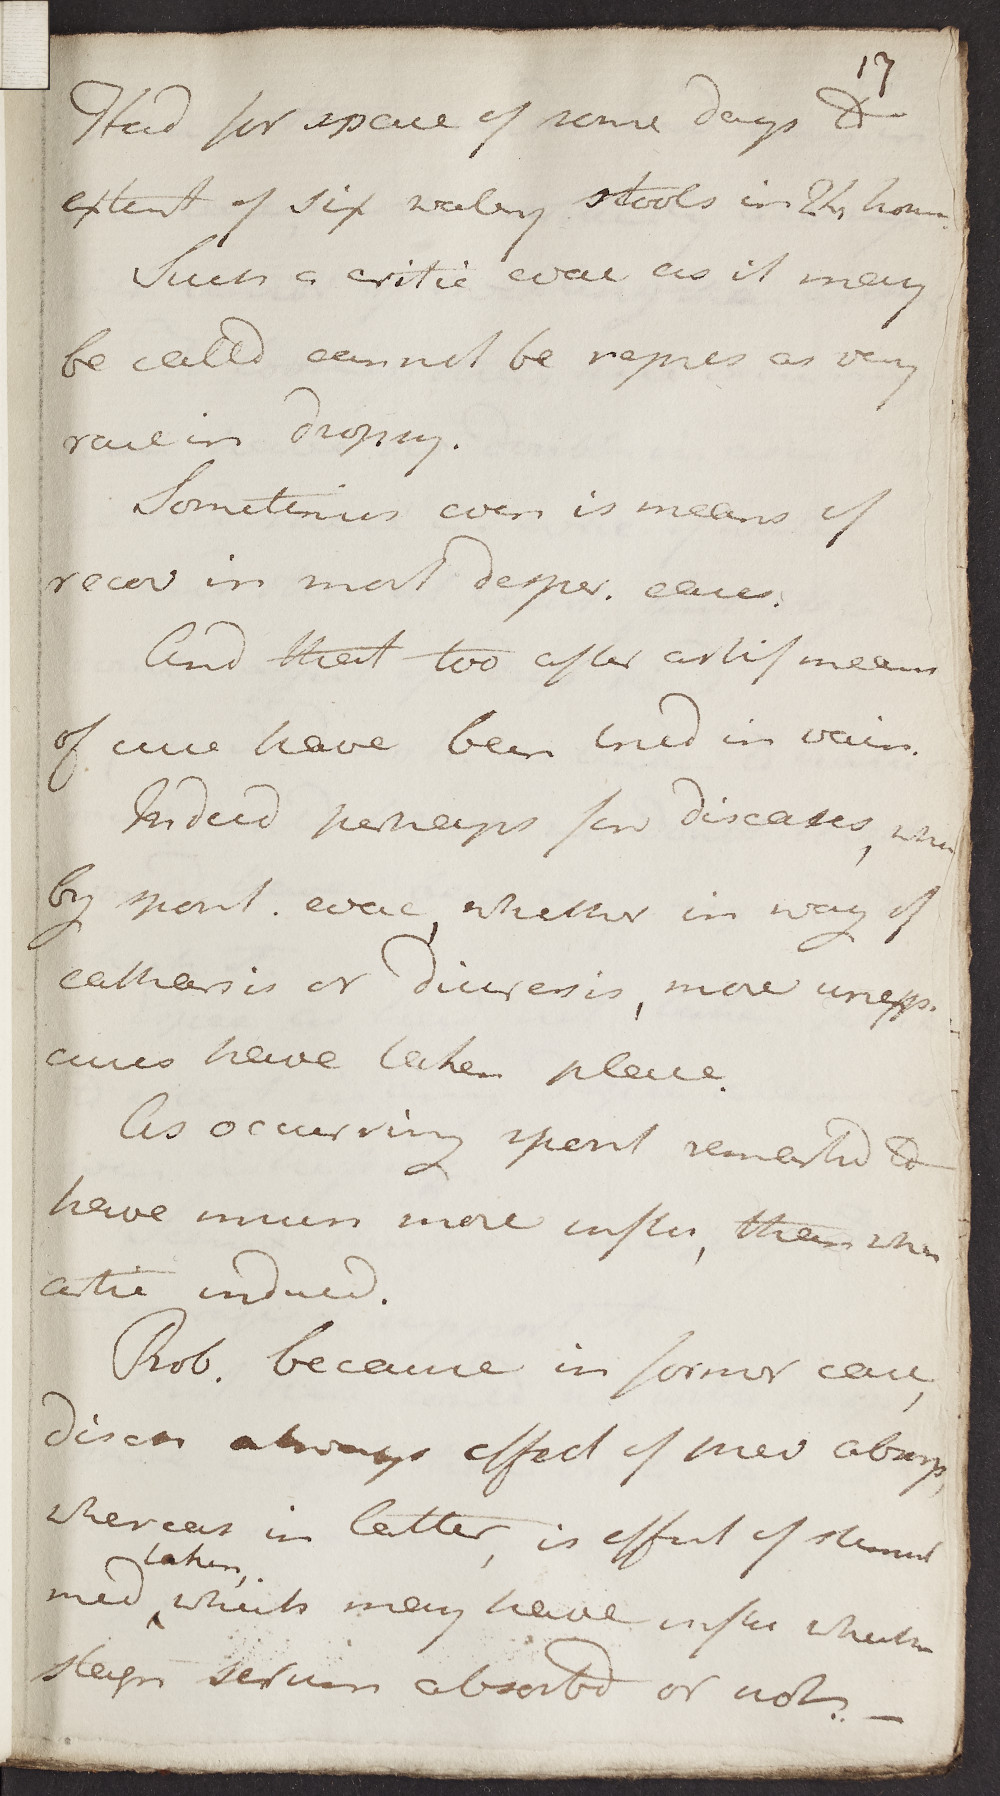 17
Had for space of some days to
extent of six watery stools in 24 hours.
Such a critic evac as it may
be called cannot be repres as very
rare in dropsy.
Sometimes even is means of
recov in most desper. cases.
And that too after artif means
of cure have been tried in vain.
Indeed perhaps few diseases, where
by spont. evac, whether in way of
catharsis or diuresis, more unexp.
cures have taken place.
As occurring spont remarkd to
have much more influ, than when
artic induced.
Prob. because in former case,
disch always effect of prev absorp,
whereas in latter, is effect of stimul
taken,
med which may have influ whether
stagn serum absorbd or not. —